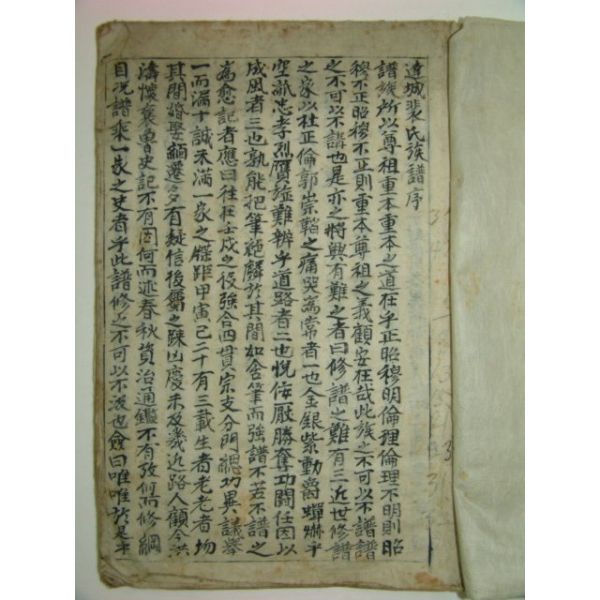 達城裴氏族譜序
譜族所以尊祖重本重本之道在乎正昭穆明倫理倫理不明則昭
穆不正昭穆不正則重本尊祖之義顧安在哉此族之不可以不譜譜
之不可以不講也是亦之將興有難之者曰修譜之難有三近世修譜
之家以杜正倫郭崇韜之痛哭爲常者一也金銀紫勳爵蟬爀乎
空誌忠孝烈贋旌難辨乎道路者二也悅侫厭勝奪功鬪任因以
成風者三也孰能把筆絶麟於其間如舍筆而強譜不若不譜之
爲愈記者應曰往在壬戌之役強合四貫宗支分門總功異議擧
一而漏十誠未滿一家之牒距甲寅已二十有三載生者老老者
其間婚娶緬遷多有疑信後雷之踈凶慶未及幾近路人顧今洪
濤懷襄魯史記不有因何而述春秋資治通鑑不有攷何而修綱
目况譜乘一家之史者乎此譜修之不可以不汲也僉曰唯唯於是乎